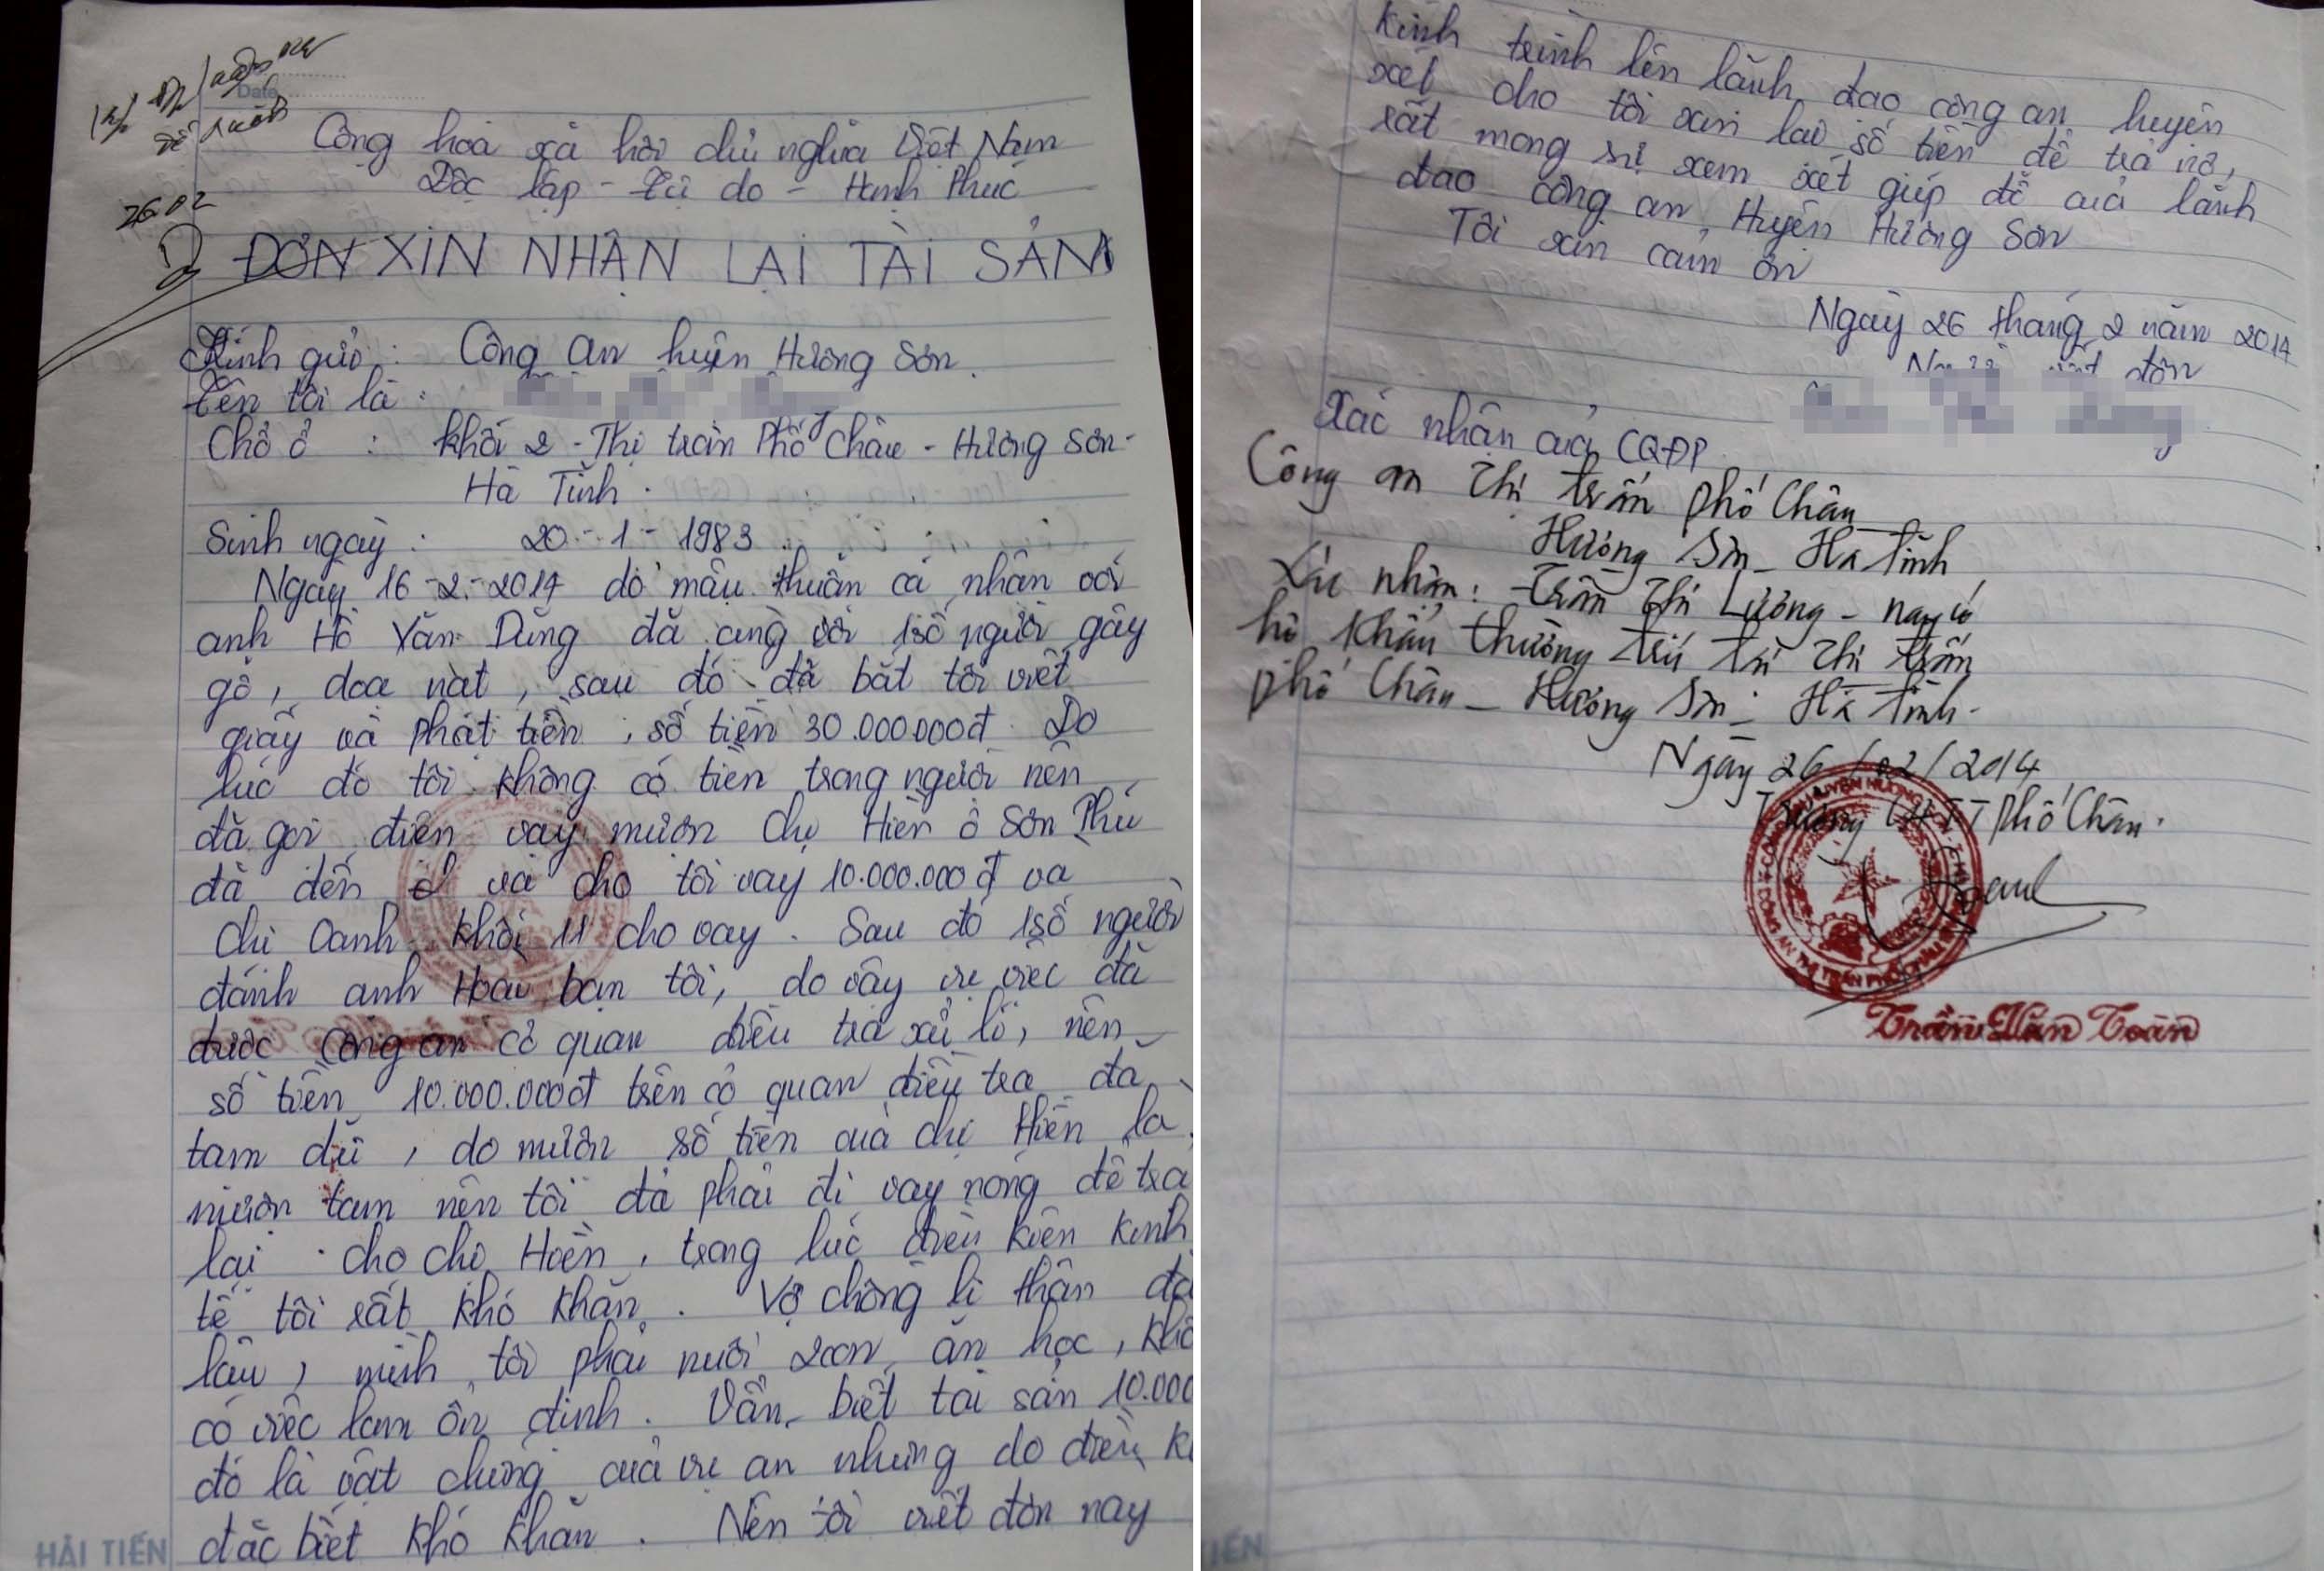 Date
26.02
Cộng hoà xã hôi chủ nghĩa Việt Nam
Độc lập - Tự do - Hạnh Phúc
ĐƠN XIN NHẬN LẠI TÀI SẢN
Kính gửi : Công an huyện Hương Sơn.
Tên tôi là :
Chỗ ở : Khối 2 - Thị trấn Phố Châu - Hương Sơn -
Hà Tĩnh.
Sinh ngày : 20 - 1 - 1983
Ngày 16-2-2014 do mâu thuẫn cá nhân với
anh Hồ Văn Dũng đã cùng với 1 số người gây
gỗ, doạ nạt, sau đó đã bắt tôi viết
giấy và phạt tiền, số tiền 30.000.000đ. Do
lúc đó tôi không có tiền trong người nên
đã gọi điện vay mượn chị Hiền ở Sơn Phú
đã đến và cho tôi vay 10.000.000đ và
chị Oanh khối 11 cho vay. Sau đó 1 số người
đánh anh Hoài bạn tôi, do vậy vụ việc đã
được công an cơ quan điều tra xử lí, nên
số tiền 10.000.000đ trên cơ quan điều tra đã
tạm dữ, do mượn số tiền của chị Hiền là
mượn tạm nên tôi đã phải đi vay nóng để trả
lại cho chị Hiền, trong lúc điều kiện kinh
tế tôi rất khó khăn. Vợ chồng li thân đã
lâu, mình tôi phải nuôi 2 con ăn học, khô
có việc làm ổn định. Vẫn biết tài sản 10.000
đó là vật chứng của vụ án nhưng do điều k
đặc biệt khó khăn. Nên tôi viết đơn này
HẢI TIẾN
Kính trình lên lãnh đạo công an huyện
xét cho tôi xin lại số tiền để trả nợ,
rất mong sự xem xét giúp đỡ của lãnh
đạo công an Huyện Hương Sơn
Tôi xin cảm ơn
Ngày 26 tháng 2 năm 2014
đơn
Xác nhận của CQĐP
Công an Thị trấn Phố Châu
Hương Sơn - Hà Tĩnh
Xác nhận : Trần Thị Lương - nay có
hộ khẩu thường trú tại Thị trấn
Phố Châu - Hương Sơn - Hà Tĩnh.
Ngày 26/02/2014
Trưởng CATT Phố Châu.
Trần Văn Toàn
TIẾN